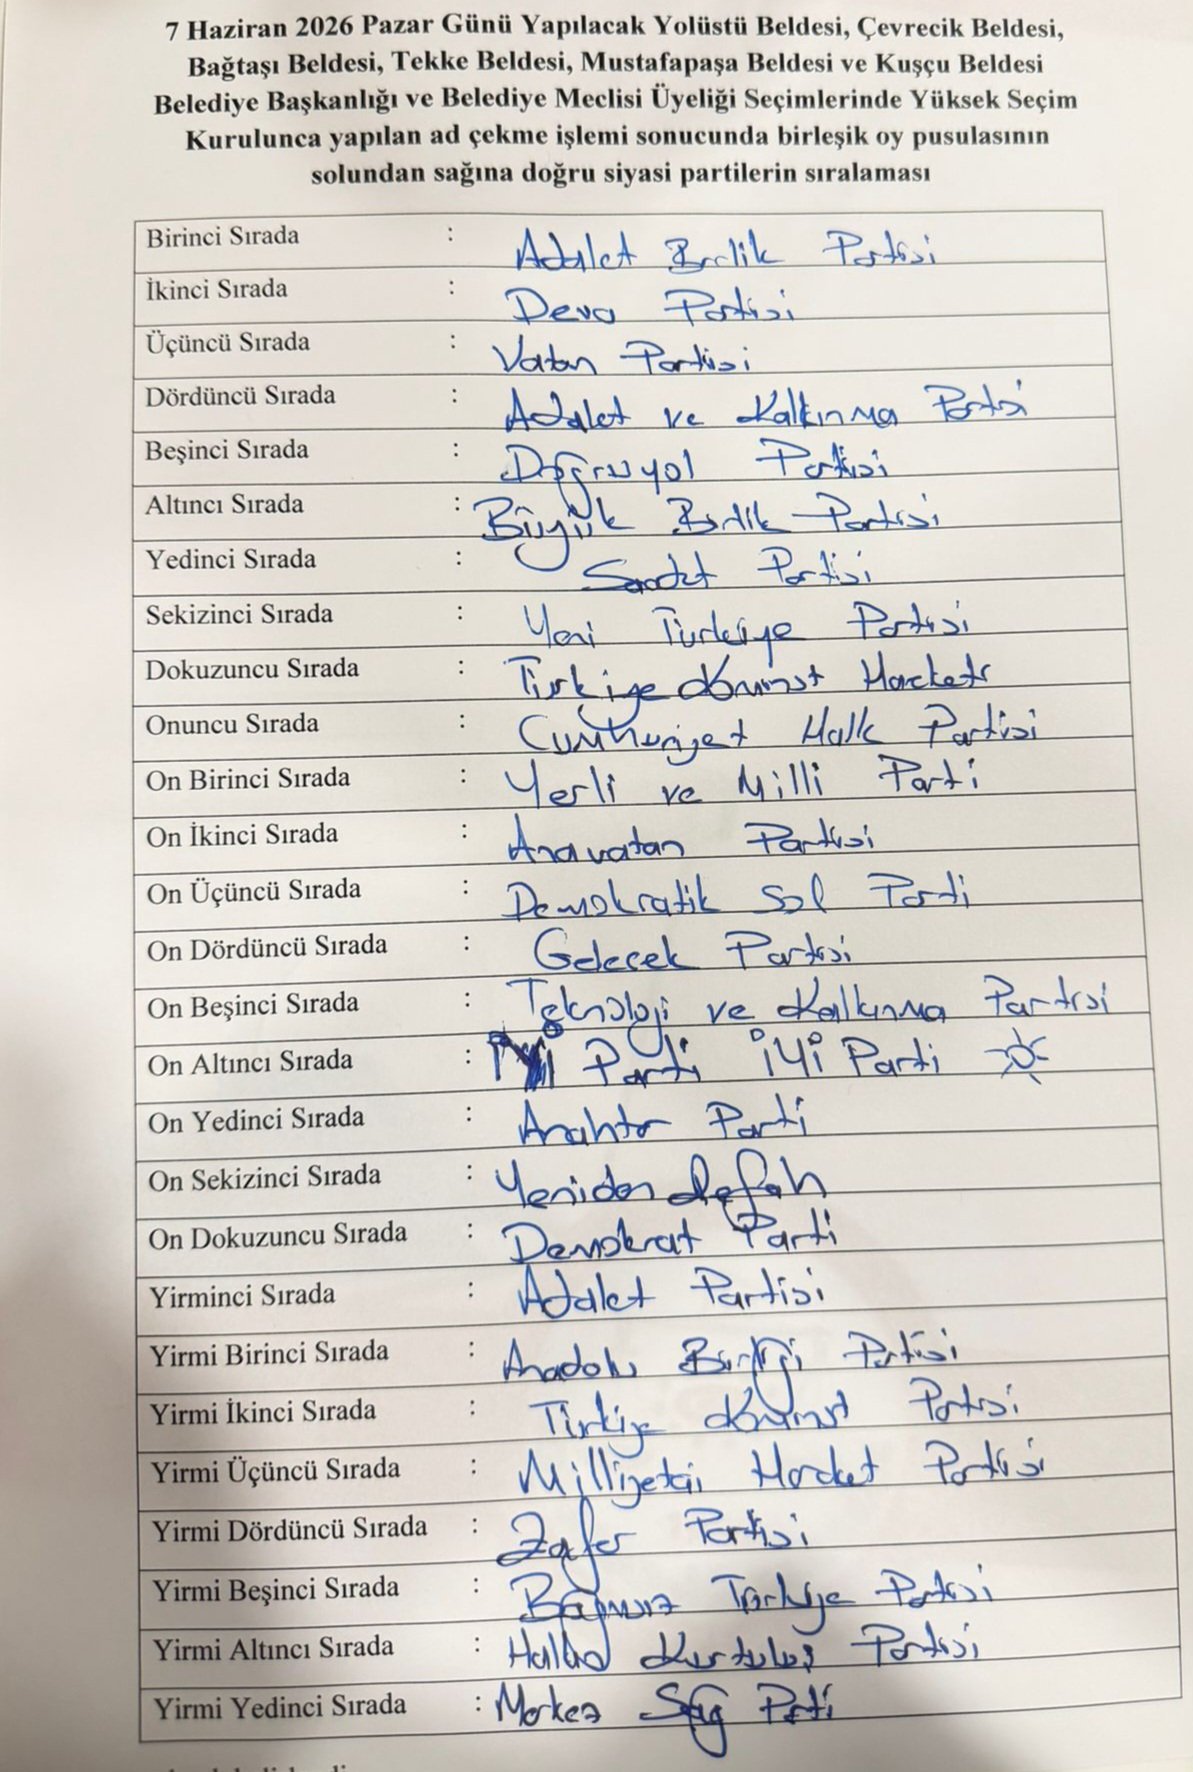 7 Haziran 2026 Pazar Günü Yapılacak Yolüstü Beldesi, Çevrecik Beldesi,
Bağtaşı Beldesi, Tekke Beldesi, Mustafapaşa Beldesi ve Kuşçu Beldesi
Belediye Başkanlığı ve Belediye Meclisi Üyeliği Seçimlerinde Yüksek Seçim
Kurulunca yapılan ad çekme işlemi sonucunda birleşik oy pusulasının
solundan sağına doğru siyasi partilerin sıralaması
Birinci Sırada : Adalet Birlik Partisi
İkinci Sırada : Deva Partisi
Üçüncü Sırada : Vatan Partisi
Dördüncü Sırada : Adalet ve Kalkınma Partisi
Beşinci Sırada : Doğruyol Partisi
Altıncı Sırada : Büyük Birlik Partisi
Yedinci Sırada : Saadet Partisi
Sekizinci Sırada : Yeni Türkiye Partisi
Dokuzuncu Sırada : Türkiye Komünist Hareketi
Onuncu Sırada : Cumhuriyet Halk Partisi
On Birinci Sırada : Yerli ve Milli Parti
On İkinci Sırada : Anavatan Partisi
On Üçüncü Sırada : Demokratik Sol Parti
On Dördüncü Sırada : Gelecek Partisi
On Beşinci Sırada : Teknoloji ve Kalkınma Partisi
On Altıncı Sırada : İYİ Parti İYİ Parti
On Yedinci Sırada : Anahtar Parti
On Sekizinci Sırada : Yeniden Refah
On Dokuzuncu Sırada : Demokrat Parti
Yirminci Sırada : Adalet Partisi
Yirmi Birinci Sırada : Anadolu Birliği Partisi
Yirmi İkinci Sırada : Türkiye Komünist Partisi
Yirmi Üçüncü Sırada : Milliyetçi Hareket Partisi
Yirmi Dördüncü Sırada : Zafer Partisi
Yirmi Beşinci Sırada : Bağımsız Türkiye Partisi
Yirmi Altıncı Sırada : Halkın Kurtuluş Partisi
Yirmi Yedinci Sırada : Merkez Sağ Parti